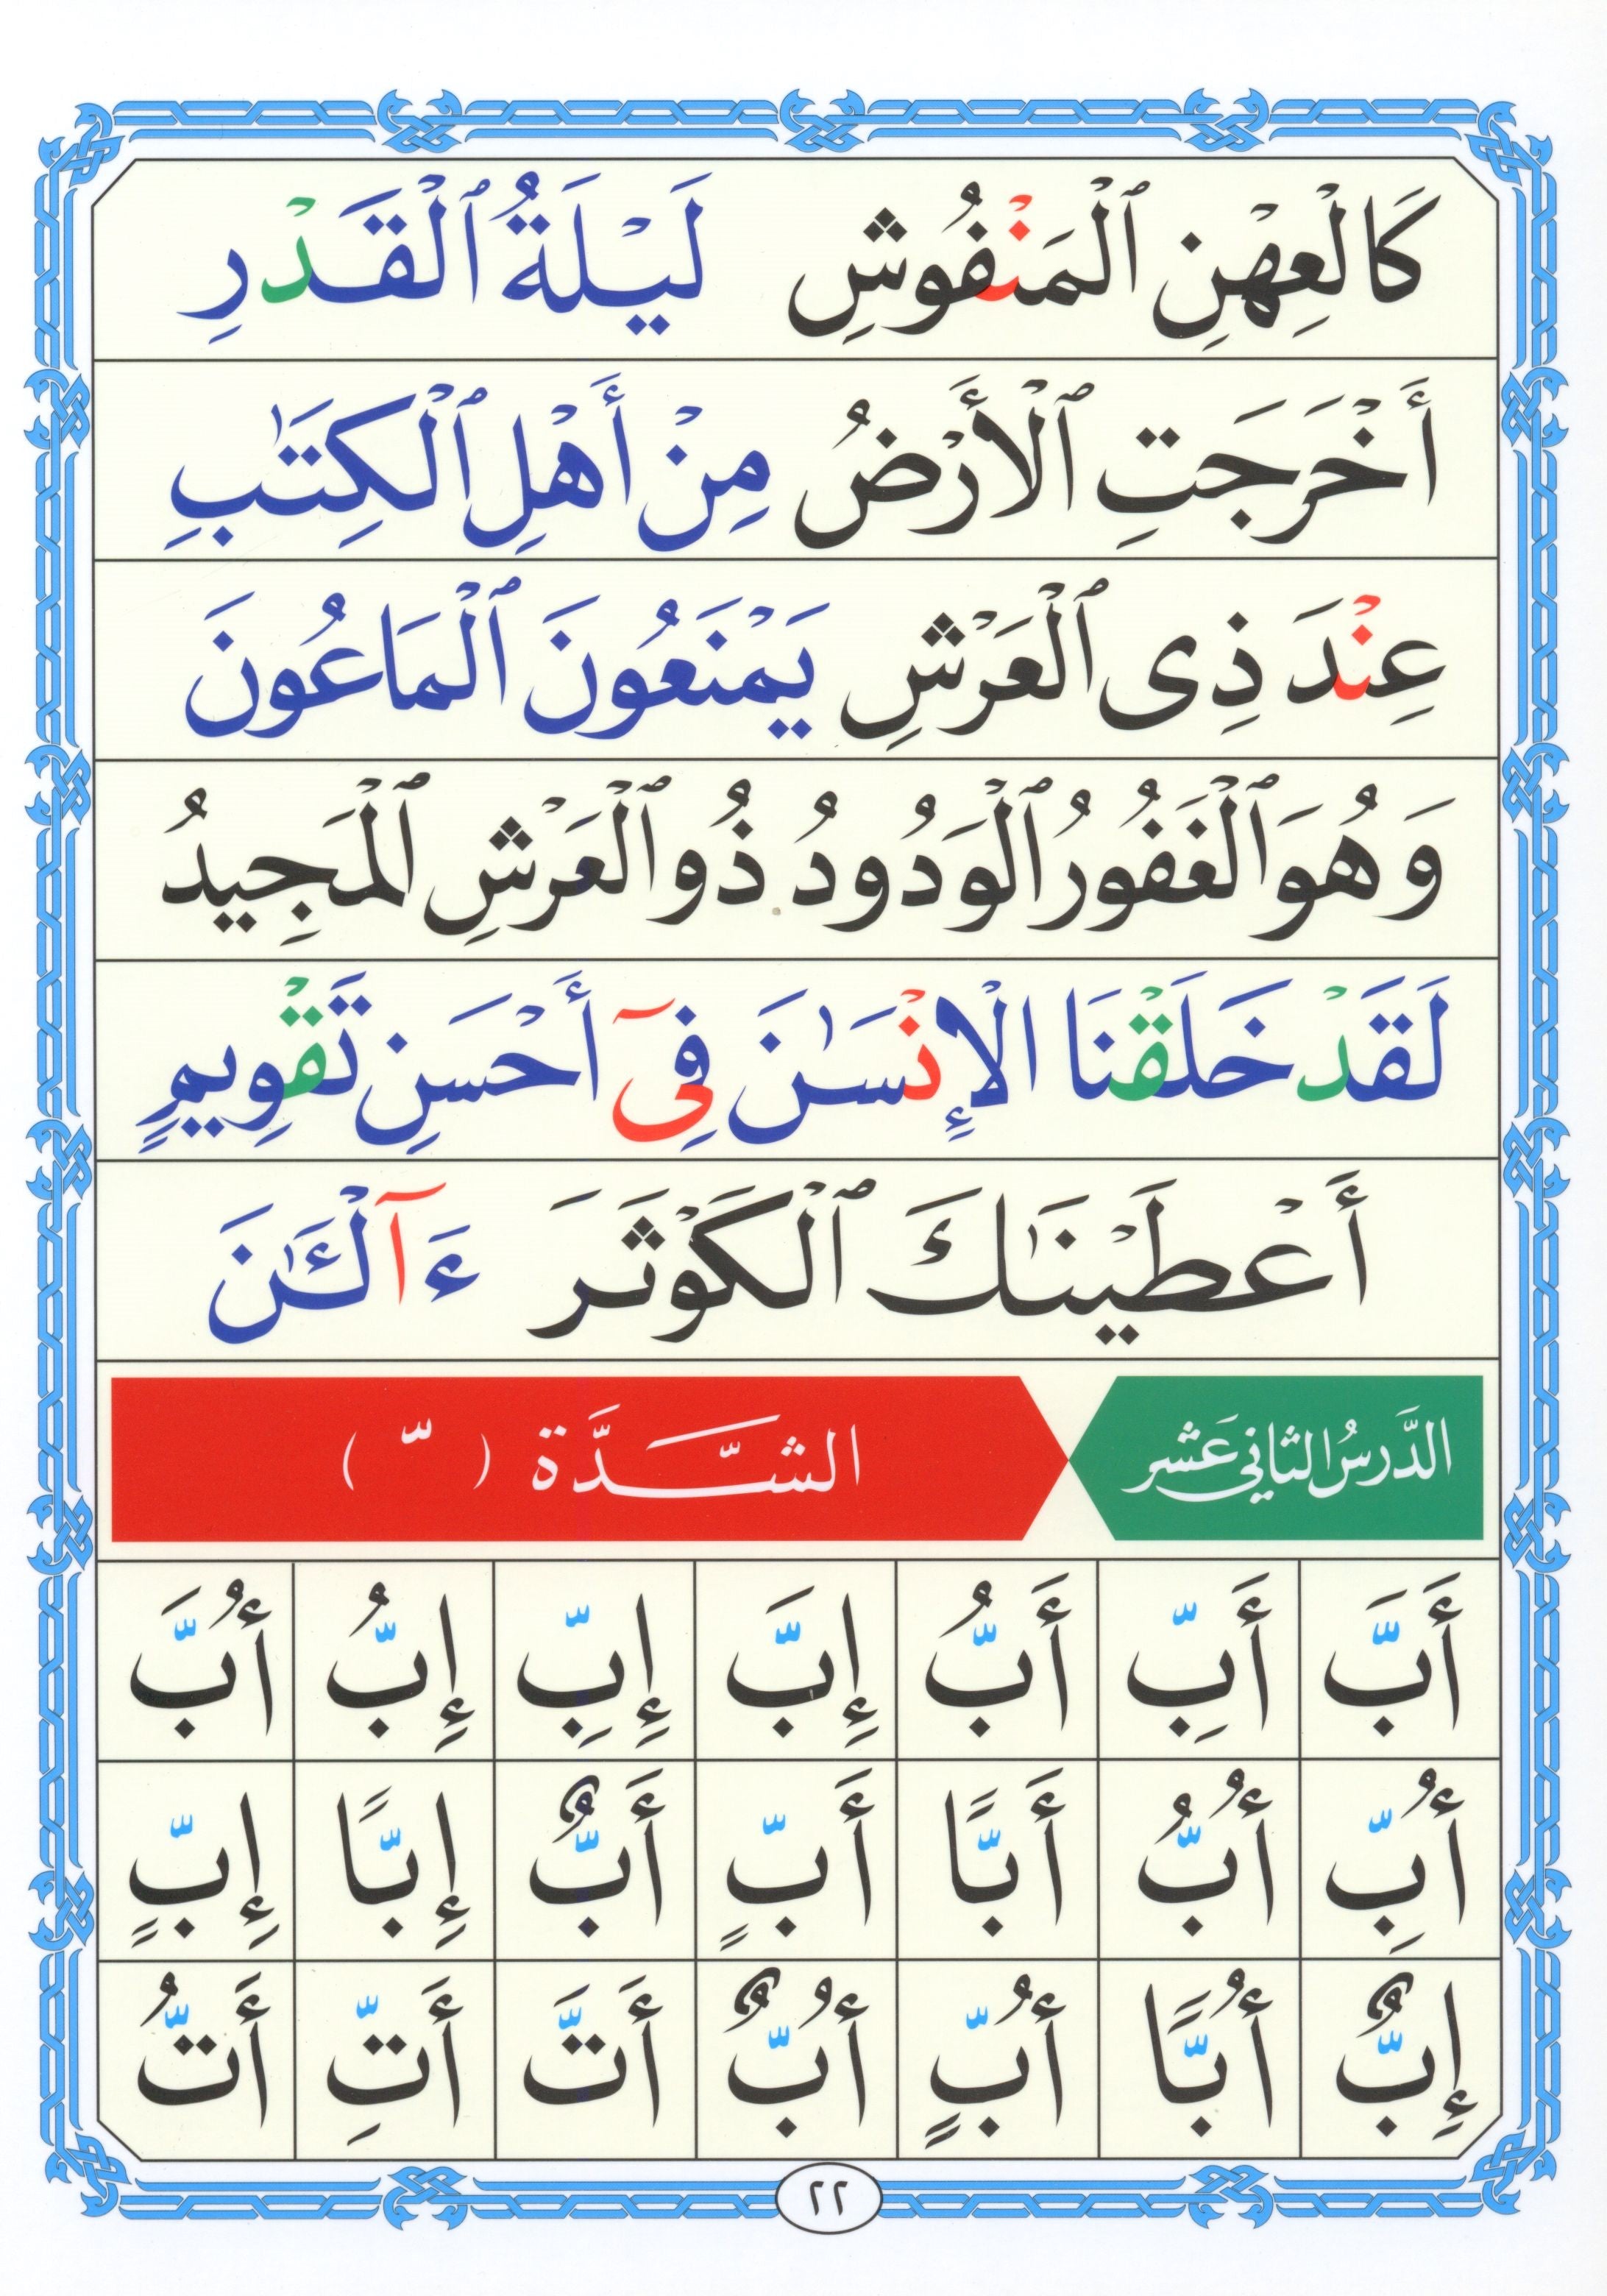 كَالْعِهْنِ ٱلْمَنْفُوشِ لَيْلَةُ ٱلْقَدْرِ
أَخْرَجَتِ ٱلْأَرْضُ مِنْ أَهْلِ ٱلْكِتَٰبِ
عِنْدَ ذِى ٱلْعَرْشِ يَمْنَعُونَ ٱلْمَاعُونَ
وَهُوَ ٱلْغَفُورُ ٱلْوَدُودُ ذُو ٱلْعَرْشِ ٱلْمَجِيدُ
لَقَدْ خَلَقْنَا الْإِنْسَٰنَ فِىٓ أَحْسَنِ تَقْوِيمٍ
أَعْطَيْنَٰكَ ٱلْكَوْثَرَ ءَآلْـَٰٔنَ
الدَّرسُ الثاني عَشر الشَّدَّة ( ّ )
أَبَّ أَبِّ أَبُّ إِبَّ إِبِّ إِبُّ أُبَّ
أُبِّ أُبُّ أَبًّا أَبٍّ أَبٌّ إِبًّا إِبٍّ
إِبٌّ أُبًّا أُبٍّ أُبٌّ أَتَّ أَتِّ أَتُّ
٢٢